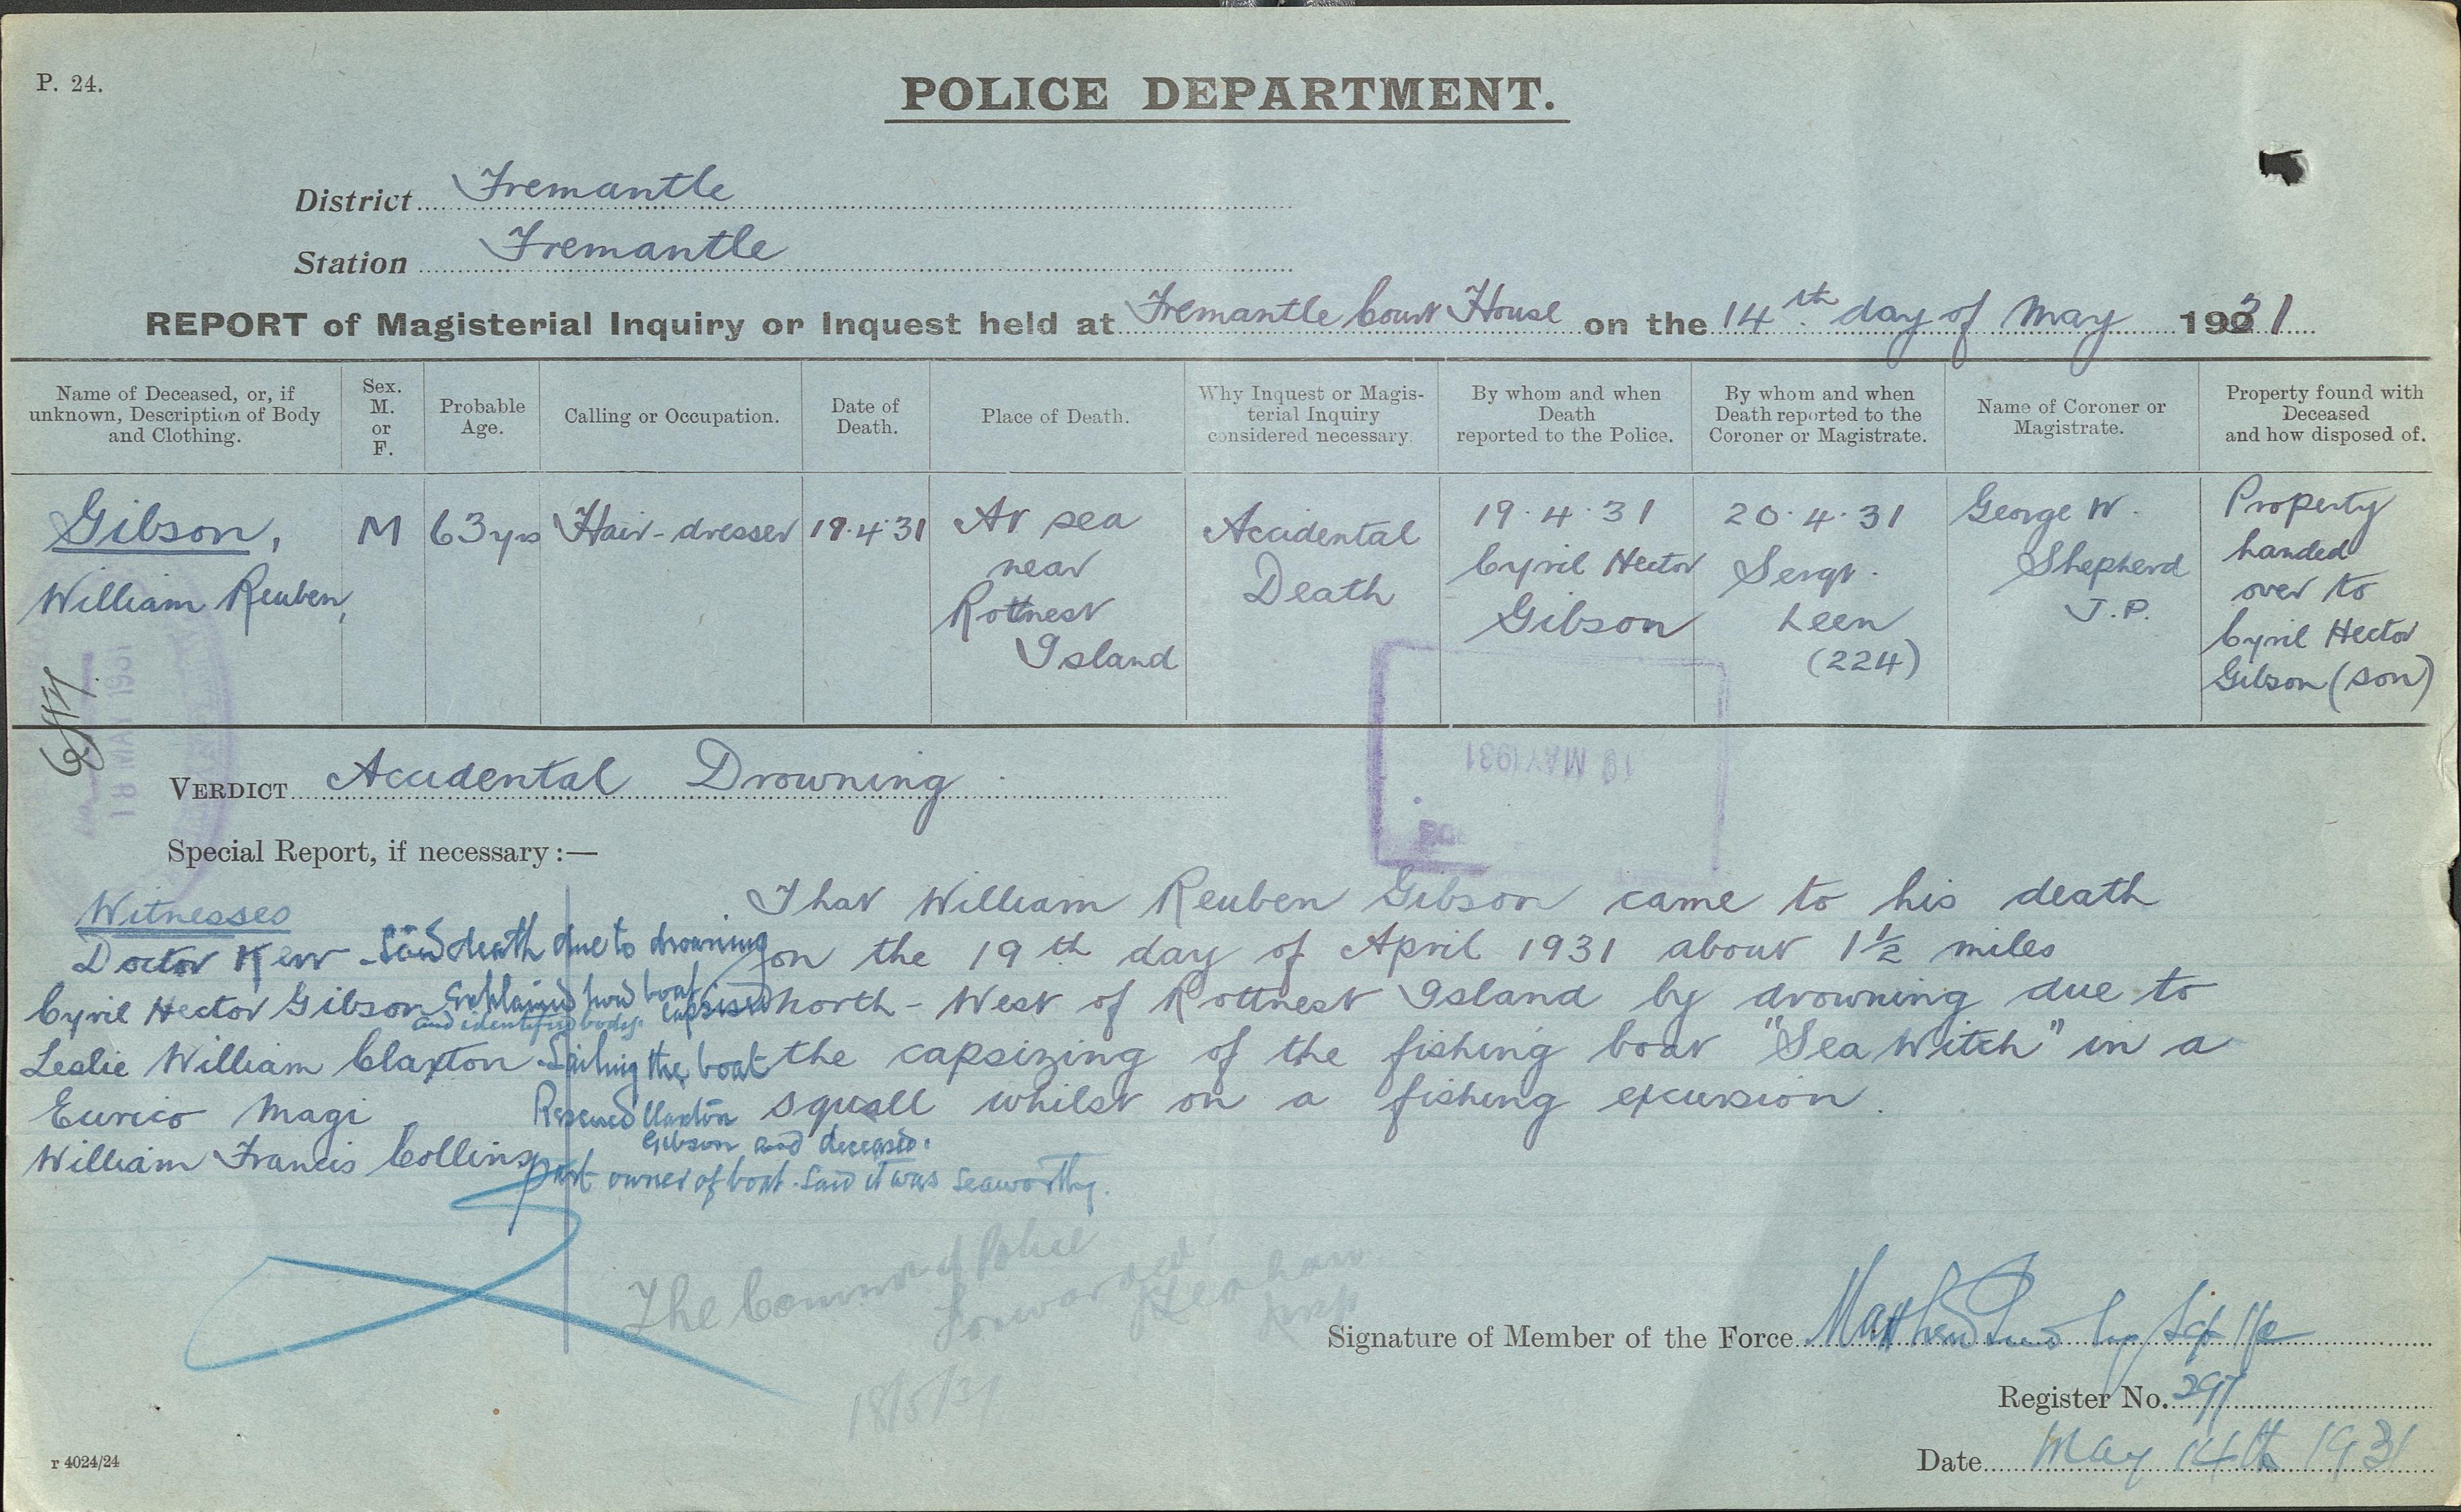 P. 24.
POLICE DEPARTMENT.
District Fremantle
Station Fremantle
REPORT of Magisterial Inquiry or Inquest held at Fremantle Court House on the 14th day of May 1931
Name of Deceased, or, if unknown, Description of Body and Clothing.
Sex. M. or F.
Probable Age.
Calling or Occupation.
Date of Death.
Place of Death.
Why Inquest or Magisterial Inquiry considered necessary.
By whom and when Death reported to the Police.
By whom and when Death reported to the Coroner or Magistrate.
Name of Coroner or Magistrate.
Property found with Deceased and how disposed of.
Gibson,
William Reuben,
M
63 yrs
Hair-dresser
19.4.31
At sea
near
Rottnest
Island
Accidental
Death
19.4.31
Cyril Hector
Gibson
20.4.31
Sergt.
Leen
(224)
George W.
Shepherd
J.P.
Property
handed
over to
Cyril Hector
Gibson (son)
18 MAY 1931
19 MAY 1931
VERDICT Accidental Drowning
Special Report, if necessary :—
Witnesses
Doctor Kerr - Said death due to drowning
Cyril Hector Gibson Explained how boat capsised
and identified body.
Leslie William Claxton - Sailing the boat
Eurico Magi Rescued Claxton
Gibson and deceased.
William Francis Collins part owner of boat. Said it was seaworthy.
That William Reuben Gibson came to his death
on the 19th day of April 1931 about 1½ miles
North-West of Rottnest Island by drowning due to
the capsizing of the fishing boat "Sea Witch" in a
squall whilst on a fishing excursion.
The Commr of Police
Forwarded
18/5/31
Signature of Member of the Force
Register No. 297
Date May 14th 1931
r 4024/24